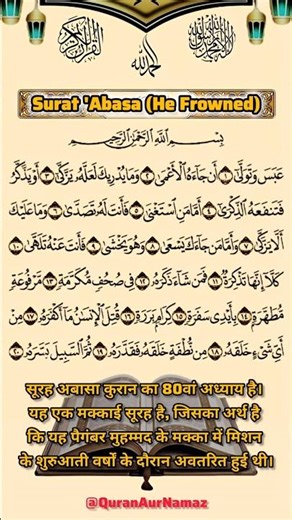 القرآن الكريم
الحمد لله
لا إله إلا الله محمد رسول الله
Surat 'Abasa (He Frowned)
بِسْمِ اللَّهِ الرَّحْمَٰنِ الرَّحِيمِ
عَبَسَ وَتَوَلَّىٰ ١ أَن جَاءَهُ الْأَعْمَىٰ ٢ وَمَا يُدْرِيكَ لَعَلَّهُ يَزَّكَّىٰ ٣ أَوْ يَذَّكَّرُ
فَتَنفَعَهُ الذِّكْرَىٰ ٤ أَمَّا مَنِ اسْتَغْنَىٰ ٥ فَأَنتَ لَهُ تَصَدَّىٰ ٦ وَمَا عَلَيْكَ
أَلَّا يَزَّكَّىٰ ٧ وَأَمَّا مَن جَاءَكَ يَسْعَىٰ ٨ وَهُوَ يَخْشَىٰ ٩ فَأَنتَ عَنْهُ تَلَهَّىٰ ١٠
كَلَّا إِنَّهَا تَذْكِرَةٌ ١١ فَمَن شَاءَ ذَكَرَهُ ١٢ فِي صُحُفٍ مُّكَرَّمَةٍ ١٣ مَّرْفُوعَةٍ
مُّطَهَّرَةٍ ١٤ بِأَيْدِي سَفَرَةٍ ١٥ كِرَامٍ بَرَرَةٍ ١٦ قُتِلَ الْإِنسَانُ مَا أَكْفَرَهُ ١٧ مِنْ
أَيِّ شَيْءٍ خَلَقَهُ ١٨ مِن نُّطْفَةٍ خَلَقَهُ فَقَدَّرَهُ ١٩ ثُمَّ السَّبِيلَ يَسَّرَهُ ٢٠
सूरह अबासा कुरान का 80वां अध्याय है।
यह एक मक्काई सूरह है, जिसका अर्थ है
कि यह पैगंबर मुहम्मद के मक्का में मिशन
के शुरुआती वर्षों के दौरान अवतरित हुई थी।
@QuranAurNamaz